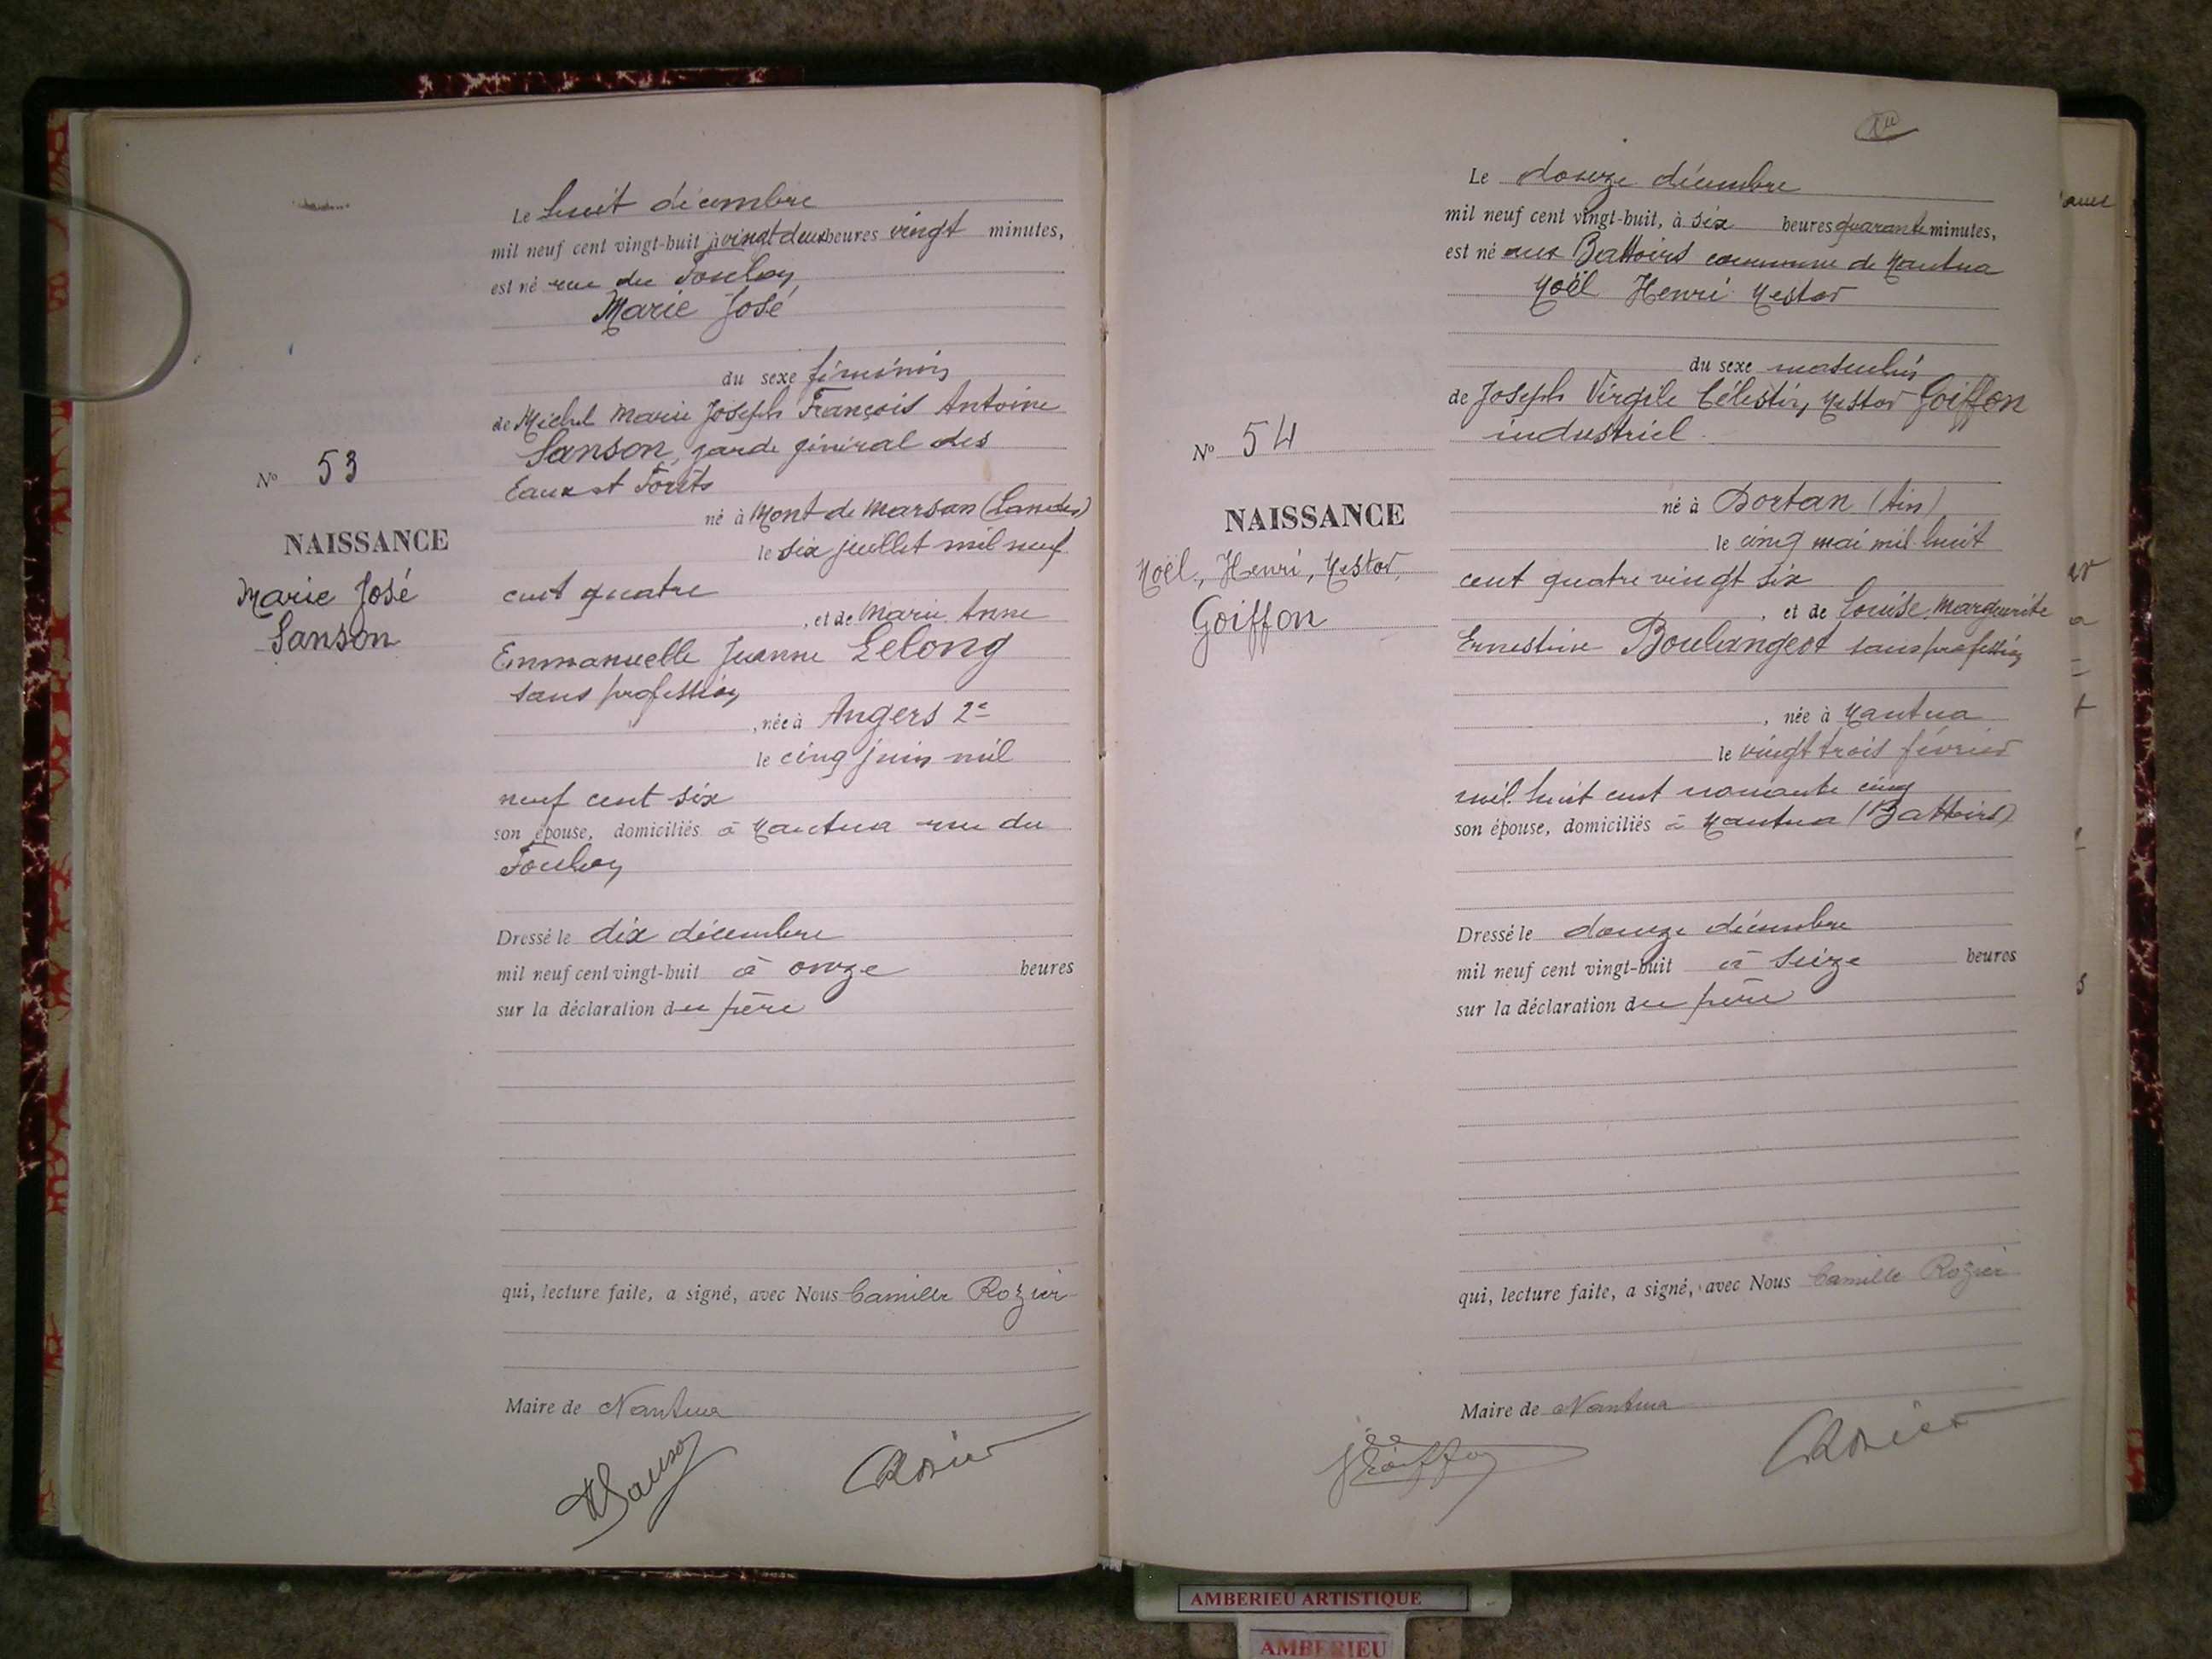 Le huit décembre
mil neuf cent vingt-huit à vingt deux heures vingt minutes,
est né rue du Foulon
Marie José
du sexe féminin
de Michel Marie Joseph François Antoine
Sanson, garde général des
Eaux et Forêts
né à Mont de Marsan (Landes)
le six juillet mil neuf
cent quatre
, et de Marie Anne
Emmanuelle Jeanne Lelong
sans profession
, née à Angers 2e
le cinq juin mil
neuf cent six
son épouse, domiciliés à Nantua rue du
Foulon
Dressé le dix décembre
mil neuf cent vingt-huit à onze heures
sur la déclaration du père
qui, lecture faite, a signé, avec Nous Camille Rozier
Maire de Nantua
No 53
NAISSANCE
Marie José
Sanson
Le douze décembre
mil neuf cent vingt-huit, à six heures quarante minutes,
est né aux Battoirs commune de Nantua
Noël Henri Nestor
du sexe masculin
de Joseph Virgile Célestin, Nestor Goiffon
industriel
né à Dortan (Ain)
le cinq mai mil huit
cent quatre vingt six
, et de Louise Marguerite
Ernestine Boulangeot sans profession
, née à Nantua
le vingt trois février
mil huit cent nonante cinq
son épouse, domiciliés à Nantua (Battoirs)
Dressé le douze décembre
mil neuf cent vingt-huit à seize heures
sur la déclaration du père
qui, lecture faite, a signé, avec Nous Camille Rozier
Maire de Nantua
No 54
NAISSANCE
Noël, Henri, Nestor,
Goiffon
AMBERIEU ARTISTIQUE
AMBERIEU